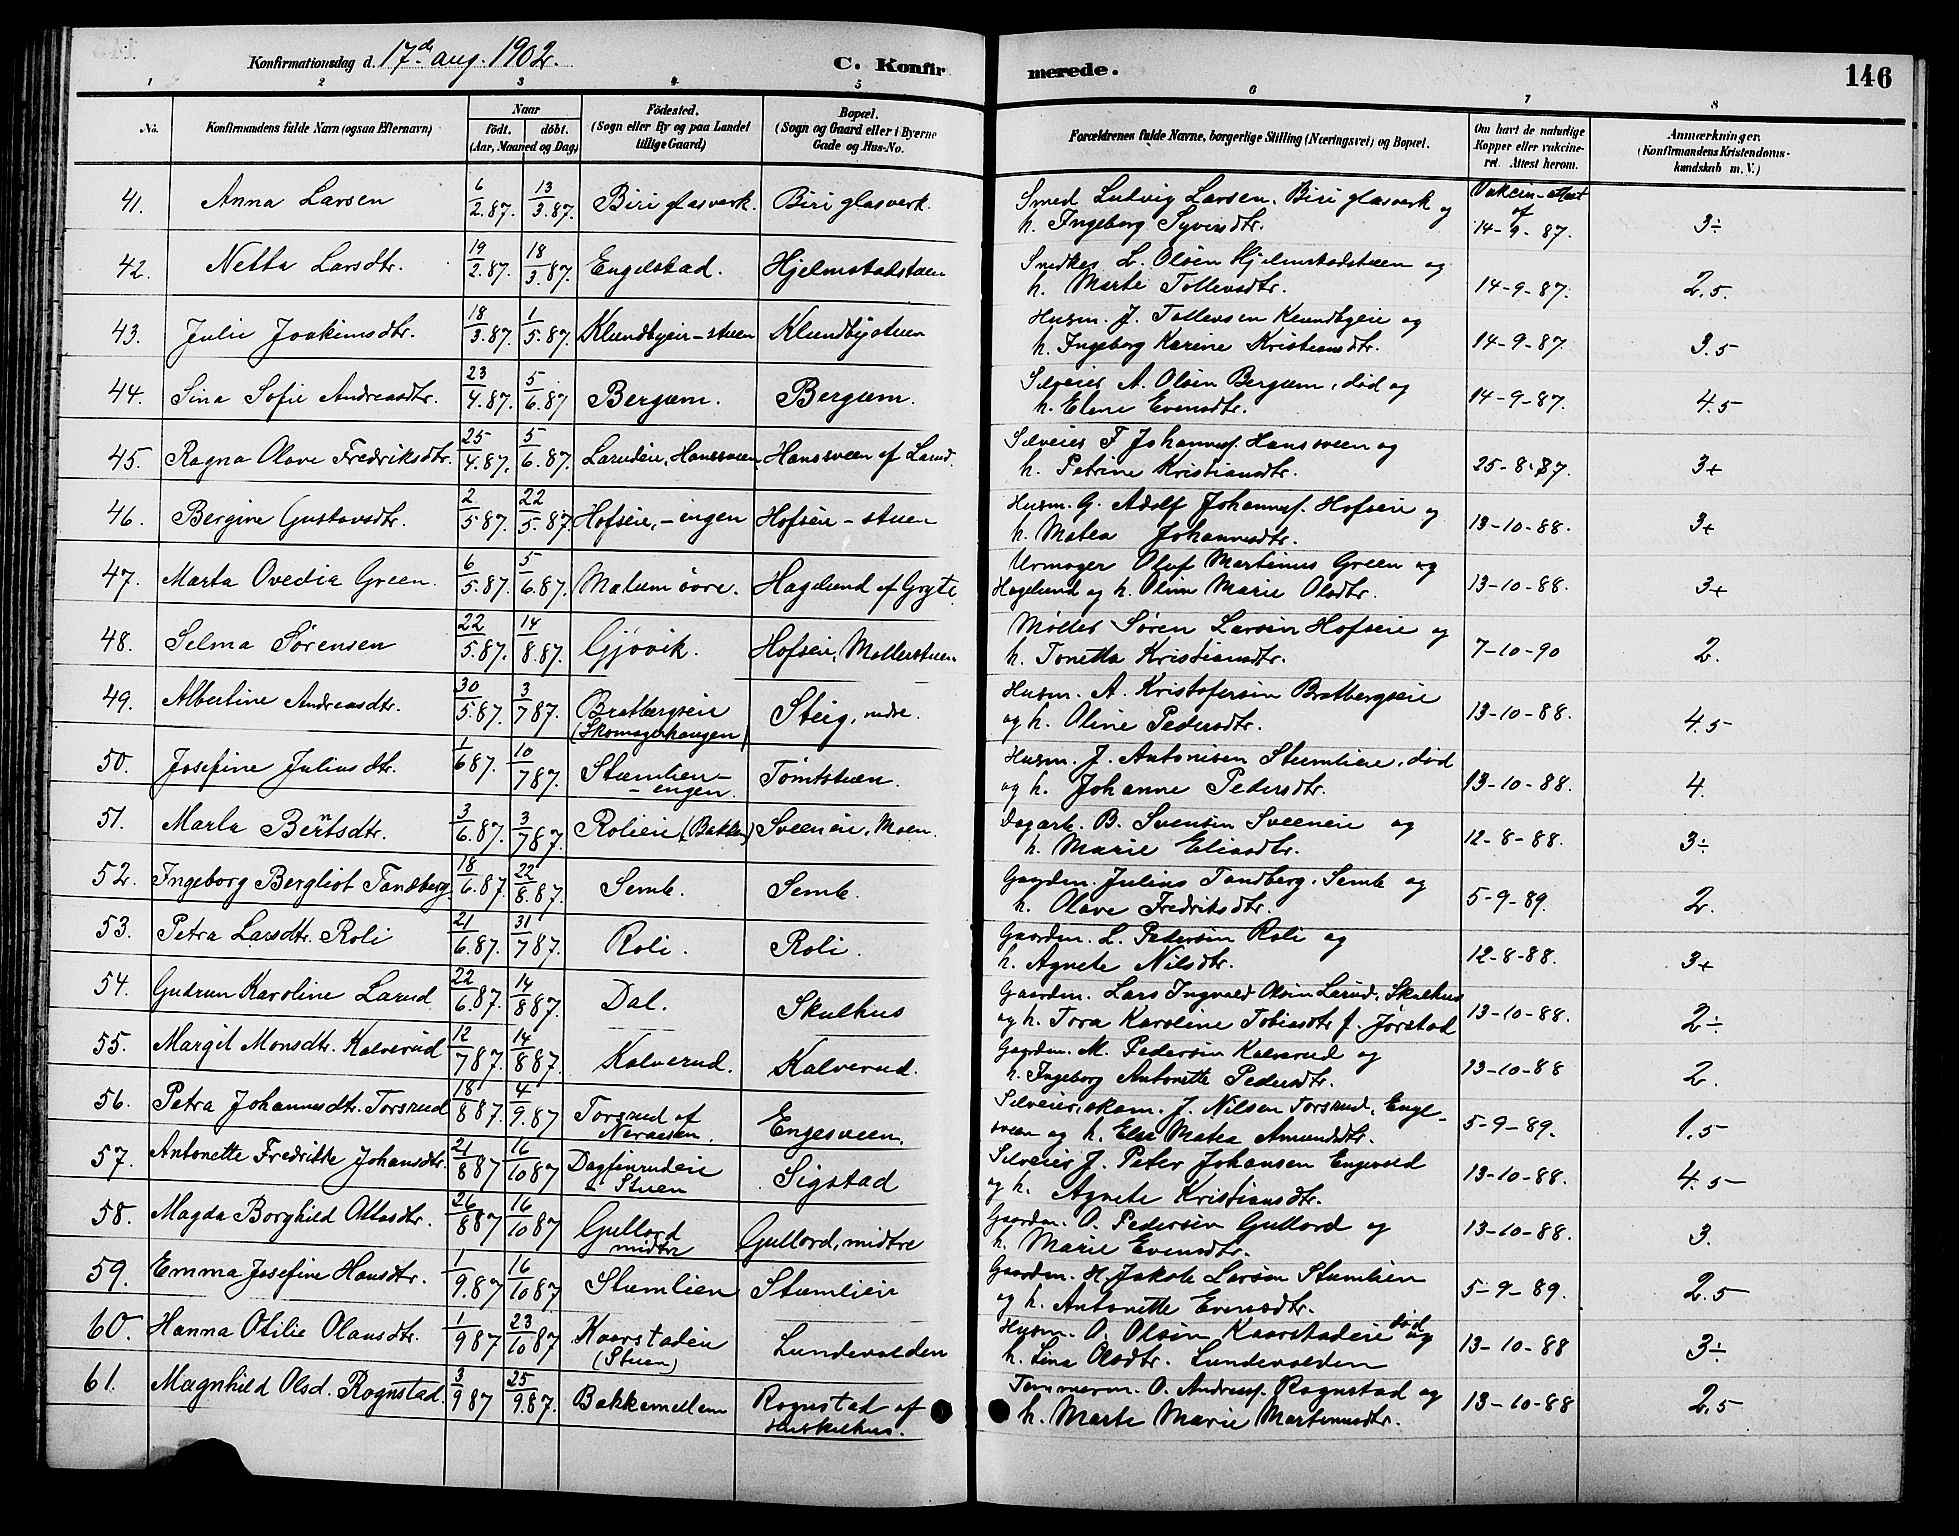 Konfirmationsdag d. 17de aug. 1902.
C. Konfirmerede.
146
1 2 3 4 5 6 7 8
No.
Konfirmandens fulde Navn (ogsaa Efternavn)
Naar
födt. döbt.
(Aar, Maaned og Dag)
Födested.
(Sogn eller By og paa Landet
tillige Gaard)
Bopæl.
(Sogn og Gaard eller i Byerne
Gade og Hus-No.
Forældrenes fulde Navne, borgerlige Stilling (Næringsvei) og Bopæl.
Om havt de naturlige
Kopper eller vakcine-
ret. Attest herom.
Anmærkninger.
(Konfirmandens Kristendoms-
kundskab m. V.)
41. Anna Larsen 6/2.87. 13/3.87. Biri glasverk. Biri glasverk. Smed Ludvig Larsen, Biri glasverk og Vakcin-attest af
h. Ingeborg Syversdtr. 14-9-87. 3÷
42. Netta Larsdtr. 19/2.87. 18/3.87. Engelstad. Hjelmstadstuen Snedker L. Olsen Hjelmstadstuen og
h. Marte Tollevsdtr. 14-9-87. 2,5.
43. Julie Joakimsdtr. 18/3.87. 1/5.87. Klundbyeie-stuen Klundbystuen Husm. J. Tollevsen Klundbyeie og
h. Ingeborg Karine Kristiansdtr. 14-9-87. 3.5
44. Sina Sofie Andreasdtr. 23/4.87. 5/6.87 Bergum. Bergum. Selveier A. Olsen Bergum, död og
h. Elene Evensdtr. 14-9-87. 4.5
45. Ragna Olave Fredriksdtr. 25/4.87. 5/6.87. Larudeie, Hansveen Hansveen af Larud. Selveier F Johannesf. Hansveen og
h. Petrine Kristiansdtr. 25-8-87. 3+
46. Bergine Gustavsdtr. 2/5.87. 22/5.87. Hofseie,-engen Hofseie-stuen Husm. G. Adolf Johannesf. Hofseie og
h. Matea Johannesdtr. 13-10-88. 3+
47. Marta Ovedia Green. 6/5.87. 5/6.87. Matum övre. Hagelund af Gryte. Urmager Oluf Martinus Green og
Hagelund og h. Oline Marie Olsdtr. 13-10-88. 3+
48. Selma Sørensen 22/5.87. 14/8.87. Gjövik. Hofseie, Möllerstuen Møller Søren Larsen Hofseie og
h. Tonetta Kristiansdtr. 7-10-90 2.
49. Albertine Andreasdtr. 30/5.87. 3/7 87. Bratbergseie Steig, nedre. Husm. A. Kristofersen Bratbergseie
(Skomagerhaugen) og h. Oline Pedersdtr. 13-10-88. 4.5
50. Josefine Juliusdtr. 1/6 87. 10/7 87. Stumlien- Tömtstuen. Husm. J. Antonisen Stumlieie, död
-engen. og h. Johanne Pedersdtr. 13-10-88. 4.
51. Marla Berntsdtr. 3/6.87. 3/7 87. Rolieie (Bakken) Sveeneie, Moen. Dagarb. B. Svensen Sveeneie og
h. Marie Eliasdtr. 12-8-88. 3÷
52. Ingeborg Bergliot Tandberg. 18/6.87. 22/8.87. Semb. Semb. Gaardm. Julius Tandberg, Semb og
h. Olave Fredriksdtr. 5-9-89. 2.
53. Petra Larsdtr. Roli 21/6.87. 31/7 87. Roli. Roli. Gaardm. L. Pedersen Roli og
h. Agnete Nilsdtr. 12-8-88. 3+
54. Gudrun Karoline Larud 22/6.87. 14/8 87. Dal. Skulhus Gaardm. Lars Ingvald Olsen Larud, Skulhus
og h. Tora Karoline Tobiasdtr f. Jørstad 13-10-88. 2÷
55. Margit Monsdtr. Kalverud 12/7 87. 14/8 87. Kalverud. Kalverud. Gaardm. M. Pedersen Kalverud og
h. Ingeborg Antonette Pedersdtr. 13-10-88 2.
56. Petra Johannesdtr. Torsrud 18/8 87. 4/9.87 Torsrud af Engesveen. Selveier, skom. J. Nilsen Torsrud, Enge-
sveen og h. Else Matea Amundsdtr. 5-9-89. 1.5
57. Antonette Fredrikke Johansdtr. 21/8 87 16/10 87 Dagfinrudeie Sigstad Selveier J. Peter Johansen Engevold
Stuen og h. Agnete Kristiansdtr. 13-10-88. 4.5
58. Magda Borghild Ottosdtr. 26/8 87 16/10 87 Gullord Gullord, midtre Gaardm. O. Pedersen Gullord og
midtre h. Marie Evensdtr. 13-10-88. 3.
59. Emma Josefine Hansdtr. 1/9.87 16/10 87 Stumlien Stumlien Gaardm. H. Jakob Larsen Stumlien
og h. Antonette Evensdtr. 5-9-89. 2.5
60. Hanna Otilie Olausdtr. 1/9 87 23/10 87 Kaarstadeie Lundevolden Husm. O. Olsen Kaarstadeie död og
(Stuen) h. Lina Olsdtr. Lundevolden 13-10-88 3÷
61. Magnhild Olsd. Rognstad. 3/9 87 25/9.87. Bakkemellem Rognstad af Tømmerm. O. Andreasf. Rognstad og
Huskelhus. h. Marte Marie Martinusdtr. 13-10-88 2,5